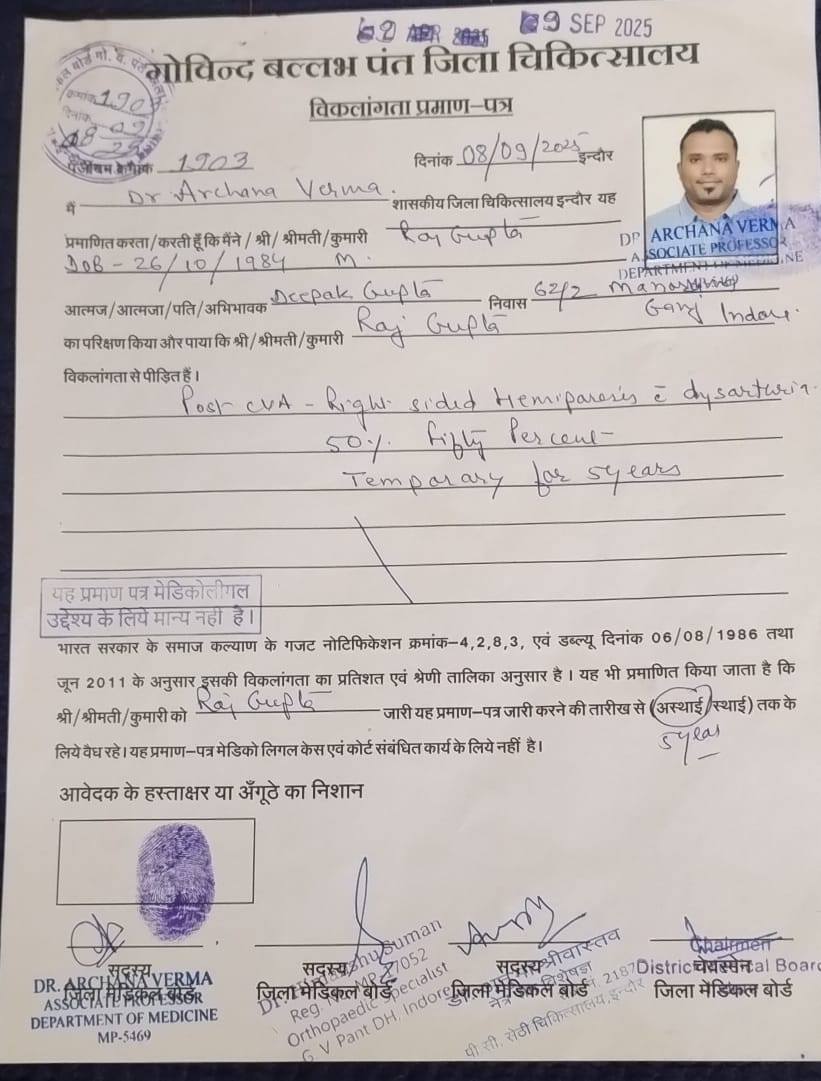 09 SEP 2025
गोविन्द बल्लभ पंत जिला चिकित्सालय
विकलांगता प्रमाण-पत्र
क्रमांक 190
दिनांक
1903
दिनांक 08/09/2025 इन्दौर
मैं Dr Archana Verma. शासकीय जिला चिकित्सालय इन्दौर यह
प्रमाणित करता/करती हूँ कि मैंने / श्री/ श्रीमती/कुमारी Raj Gupta
DR ARCHANA VERMA
ASSOCIATE PROFESSOR
DEPARTMENT OF MEDICINE
DOB - 26/10/1984 M.
आत्मज/आत्मजा/पति/अभिभावक Deepak Gupta निवास 62/2
Ganj Indore.
का परिक्षण किया और पाया कि श्री/श्रीमती/कुमारी Raj Gupta
विकलांगता से पीड़ित हैं।
Post CVA - Right sided Hemiparesis c̄ dysarturia.
50% Fifty Percent
Temporary for 5 years
यह प्रमाण पत्र मेडिकोलीगल
उद्देश्य के लिये मान्य नही है।
भारत सरकार के समाज कल्याण के गजट नोटिफिकेशन क्रमांक-4,2,8,3, एवं डब्ल्यू दिनांक 06/08/1986 तथा
जून 2011 के अनुसार इसकी विकलांगता का प्रतिशत एवं श्रेणी तालिका अनुसार है। यह भी प्रमाणित किया जाता है कि
श्री/श्रीमती/कुमारी को Raj Gupta जारी यह प्रमाण-पत्र जारी करने की तारीख से (अस्थाई/स्थाई) तक के
5 year
लिये वैध रहे। यह प्रमाण-पत्र मेडिको लिगल केस एवं कोर्ट संबंधित कार्य के लिये नहीं है।
आवेदक के हस्ताक्षर या अँगूठे का निशान
सदस्य
जिला मेडिकल बोर्ड
DR. ARCHANA VERMA
ASSOCIATE PROFESSOR
DEPARTMENT OF MEDICINE
MP-5469
सदस्य
जिला मेडिकल बोर्ड
Suman
Orthopaedic Specialist
G. V Pant DH, Indore
सदस्य
जिला मेडिकल बोर्ड
श्रीवास्तव
विशेषज्ञ
पी सी. सेठी चिकित्सालय, इन्दौर
Chairmen
District Medical Board
चेयरमेन
जिला मेडिकल बोर्ड